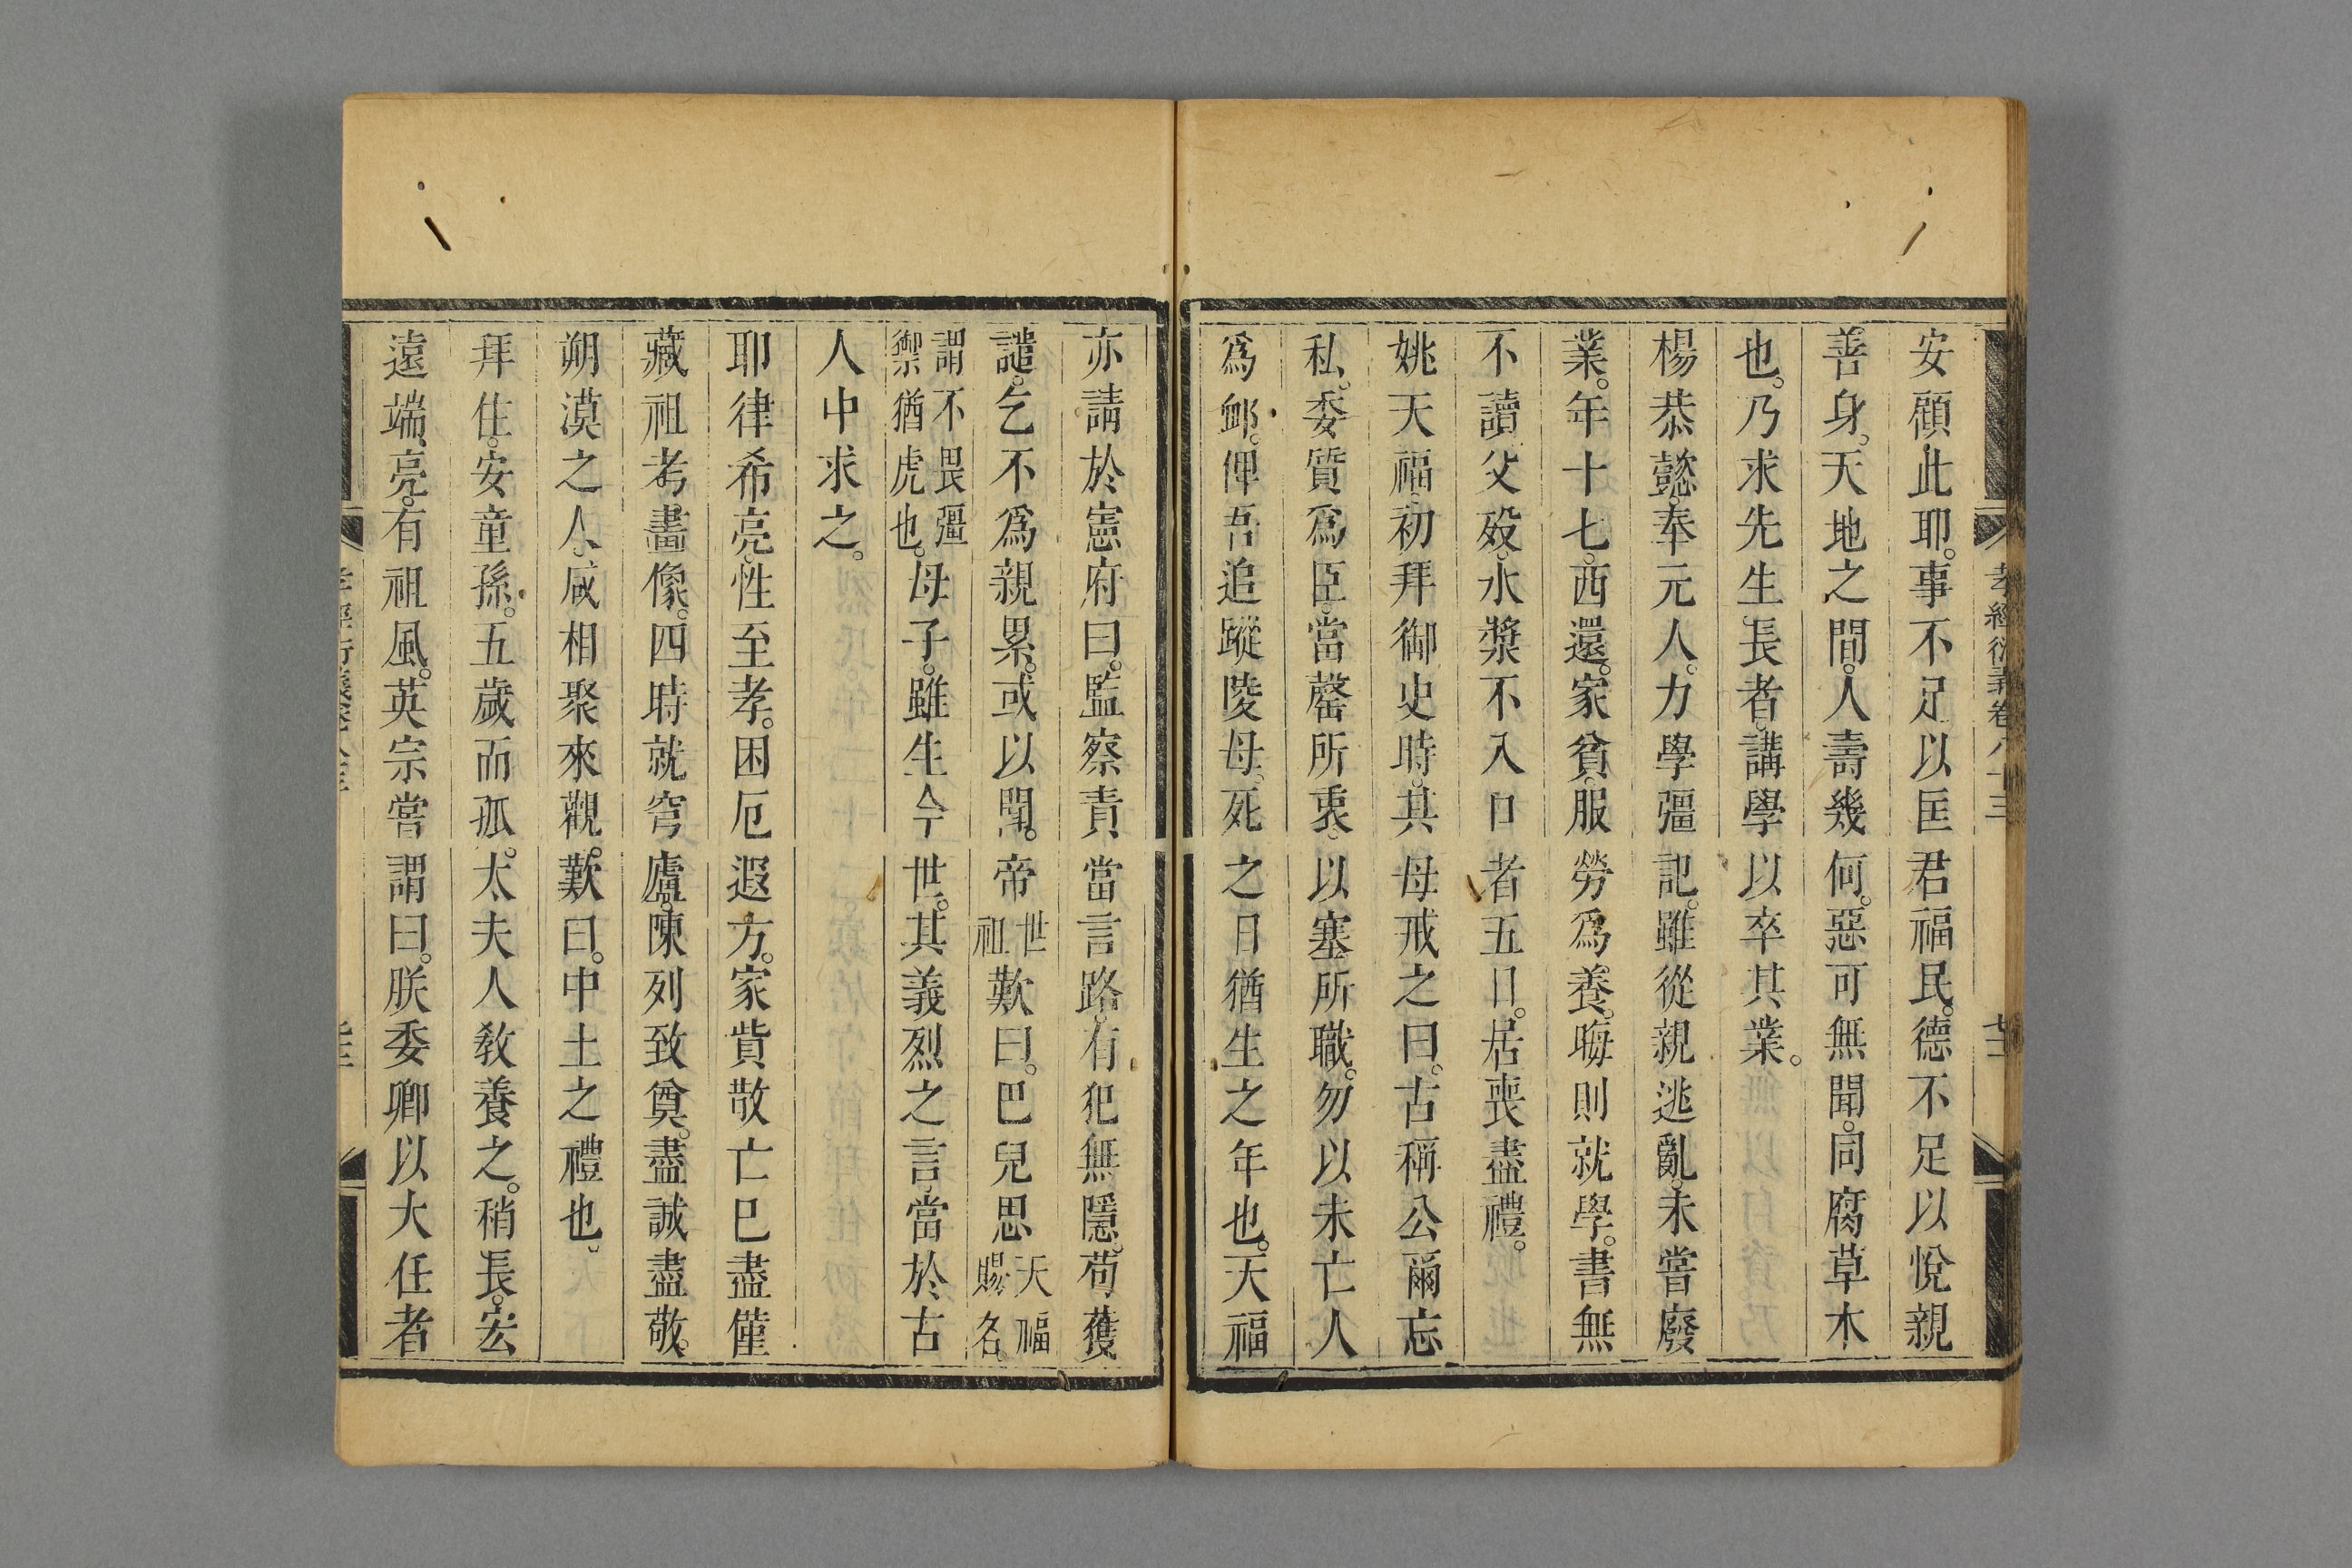 孝經衍義卷八十三
安顧此耶。事不足以匡君福民。德不足以悅親
善身。天地之間。人壽幾何。惡可無聞。同腐草木
也。乃求先生長者。講學以卒其業。
楊恭懿。奉元人。力學彊記。雖從親逃亂。未嘗廢
業。年十七。西還。家貧。服勞爲養。暇則就學。書無
不讀。父歿。水漿不入口者五日。居喪盡禮。
姚天福。初拜御史時。其母戒之曰。古稱公爾忘
私。委質爲臣。當罄所衷。以塞所職。勿以未亡人
爲卹。俾吾追蹤陵母。死之日猶生之年也。天福
亦請於憲府曰。監察責當言路。有犯無隱。苟獲
譴。乞不爲親累。或以聞。帝世祖歎曰。巴兒思天福賜名。
謂不畏彊禦猶虎也。母子。雖生今世。其義烈之言。當於古
人中求之。
耶律希亮。性至孝。困厄遐方。家貲散亡已盡。僅
藏祖考畵像。四時就穹廬。陳列致奠。盡誠盡敬。
朔漠之人。咸相聚來觀。歎曰。中土之禮也。
拜住。安童孫。五歲而孤。太夫人教養之。稍長。宏
遠端亮。有祖風。英宗嘗謂曰。朕委卿以大任者